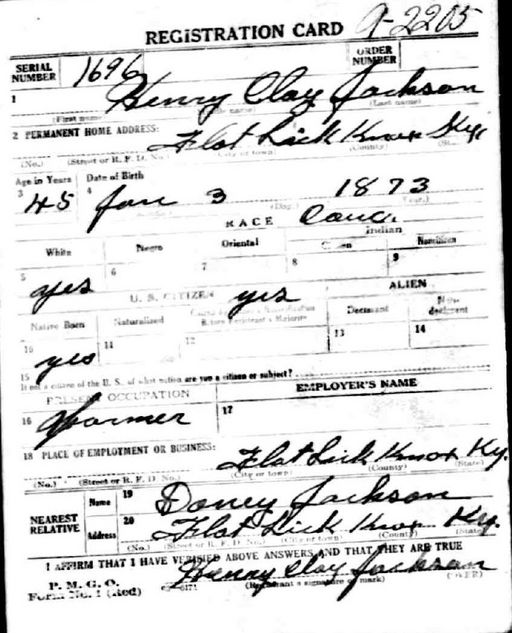 REGISTRATION CARD 9-2205
SERIAL NUMBER 1696 ORDER NUMBER
1 Henry Clay Jackson
(First name) (Last name)
2 PERMANENT HOME ADDRESS: Flat Lick Knox Ky.
(No.) (Street or R. F. D. No.) (City or town) (County)
Age in Years Date of Birth
3 45 4 Jan 3 1873
(Day.) (Year.)
RACE Cauc.
White Negro Oriental Indian
Citizen Noncitizen
5 yes 6 7 8 9
U. S. CITIZEN yes ALIEN
Native Born Naturalized Declarant Non-declarant
10 yes 11 12 13 14
15 If not a citizen of the U. S. of what nation are you a citizen or subject?
PRESENT OCCUPATION EMPLOYER'S NAME
16 Farmer 17
18 PLACE OF EMPLOYMENT OR BUSINESS:
Flat Lick Knox Ky.
(No.) (Street or R. F. D. No.) (City or town) (County) (State)
NEAREST RELATIVE Name 19 Doney Jackson
Address 20 Flat Lick Knox Ky.
(No.) (Street or R. F. D. No.) (City or town) (County) (State)
I AFFIRM THAT I HAVE VERIFIED ABOVE ANSWERS AND THAT THEY ARE TRUE
P. M. G. O.
Form No. 1 (Red) Henny Clay Jackson
(Registrant's signature or mark) (OVER)